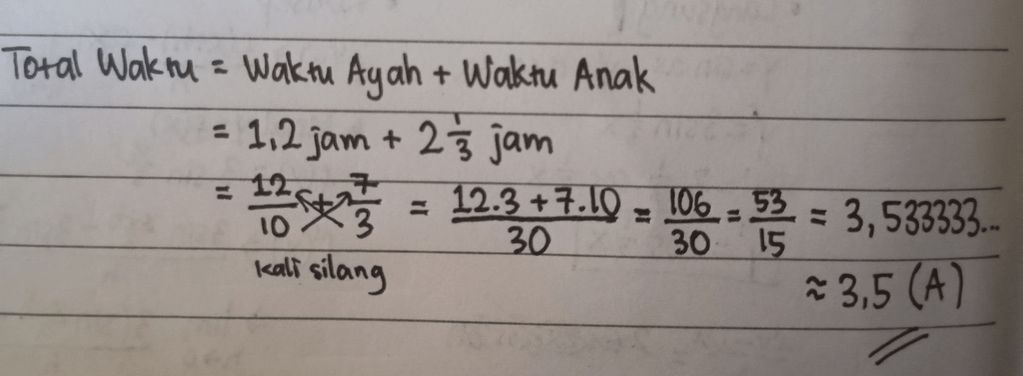 Total Waktu = Waktu Ayah + Waktu Anak
= 1,2 jam + 2 1/3 jam
= 12/10 + 7/3 = (12.3 + 7.10)/30 = 106/30 = 53/15 = 3,533333...
kali silang
≈ 3,5 (A)